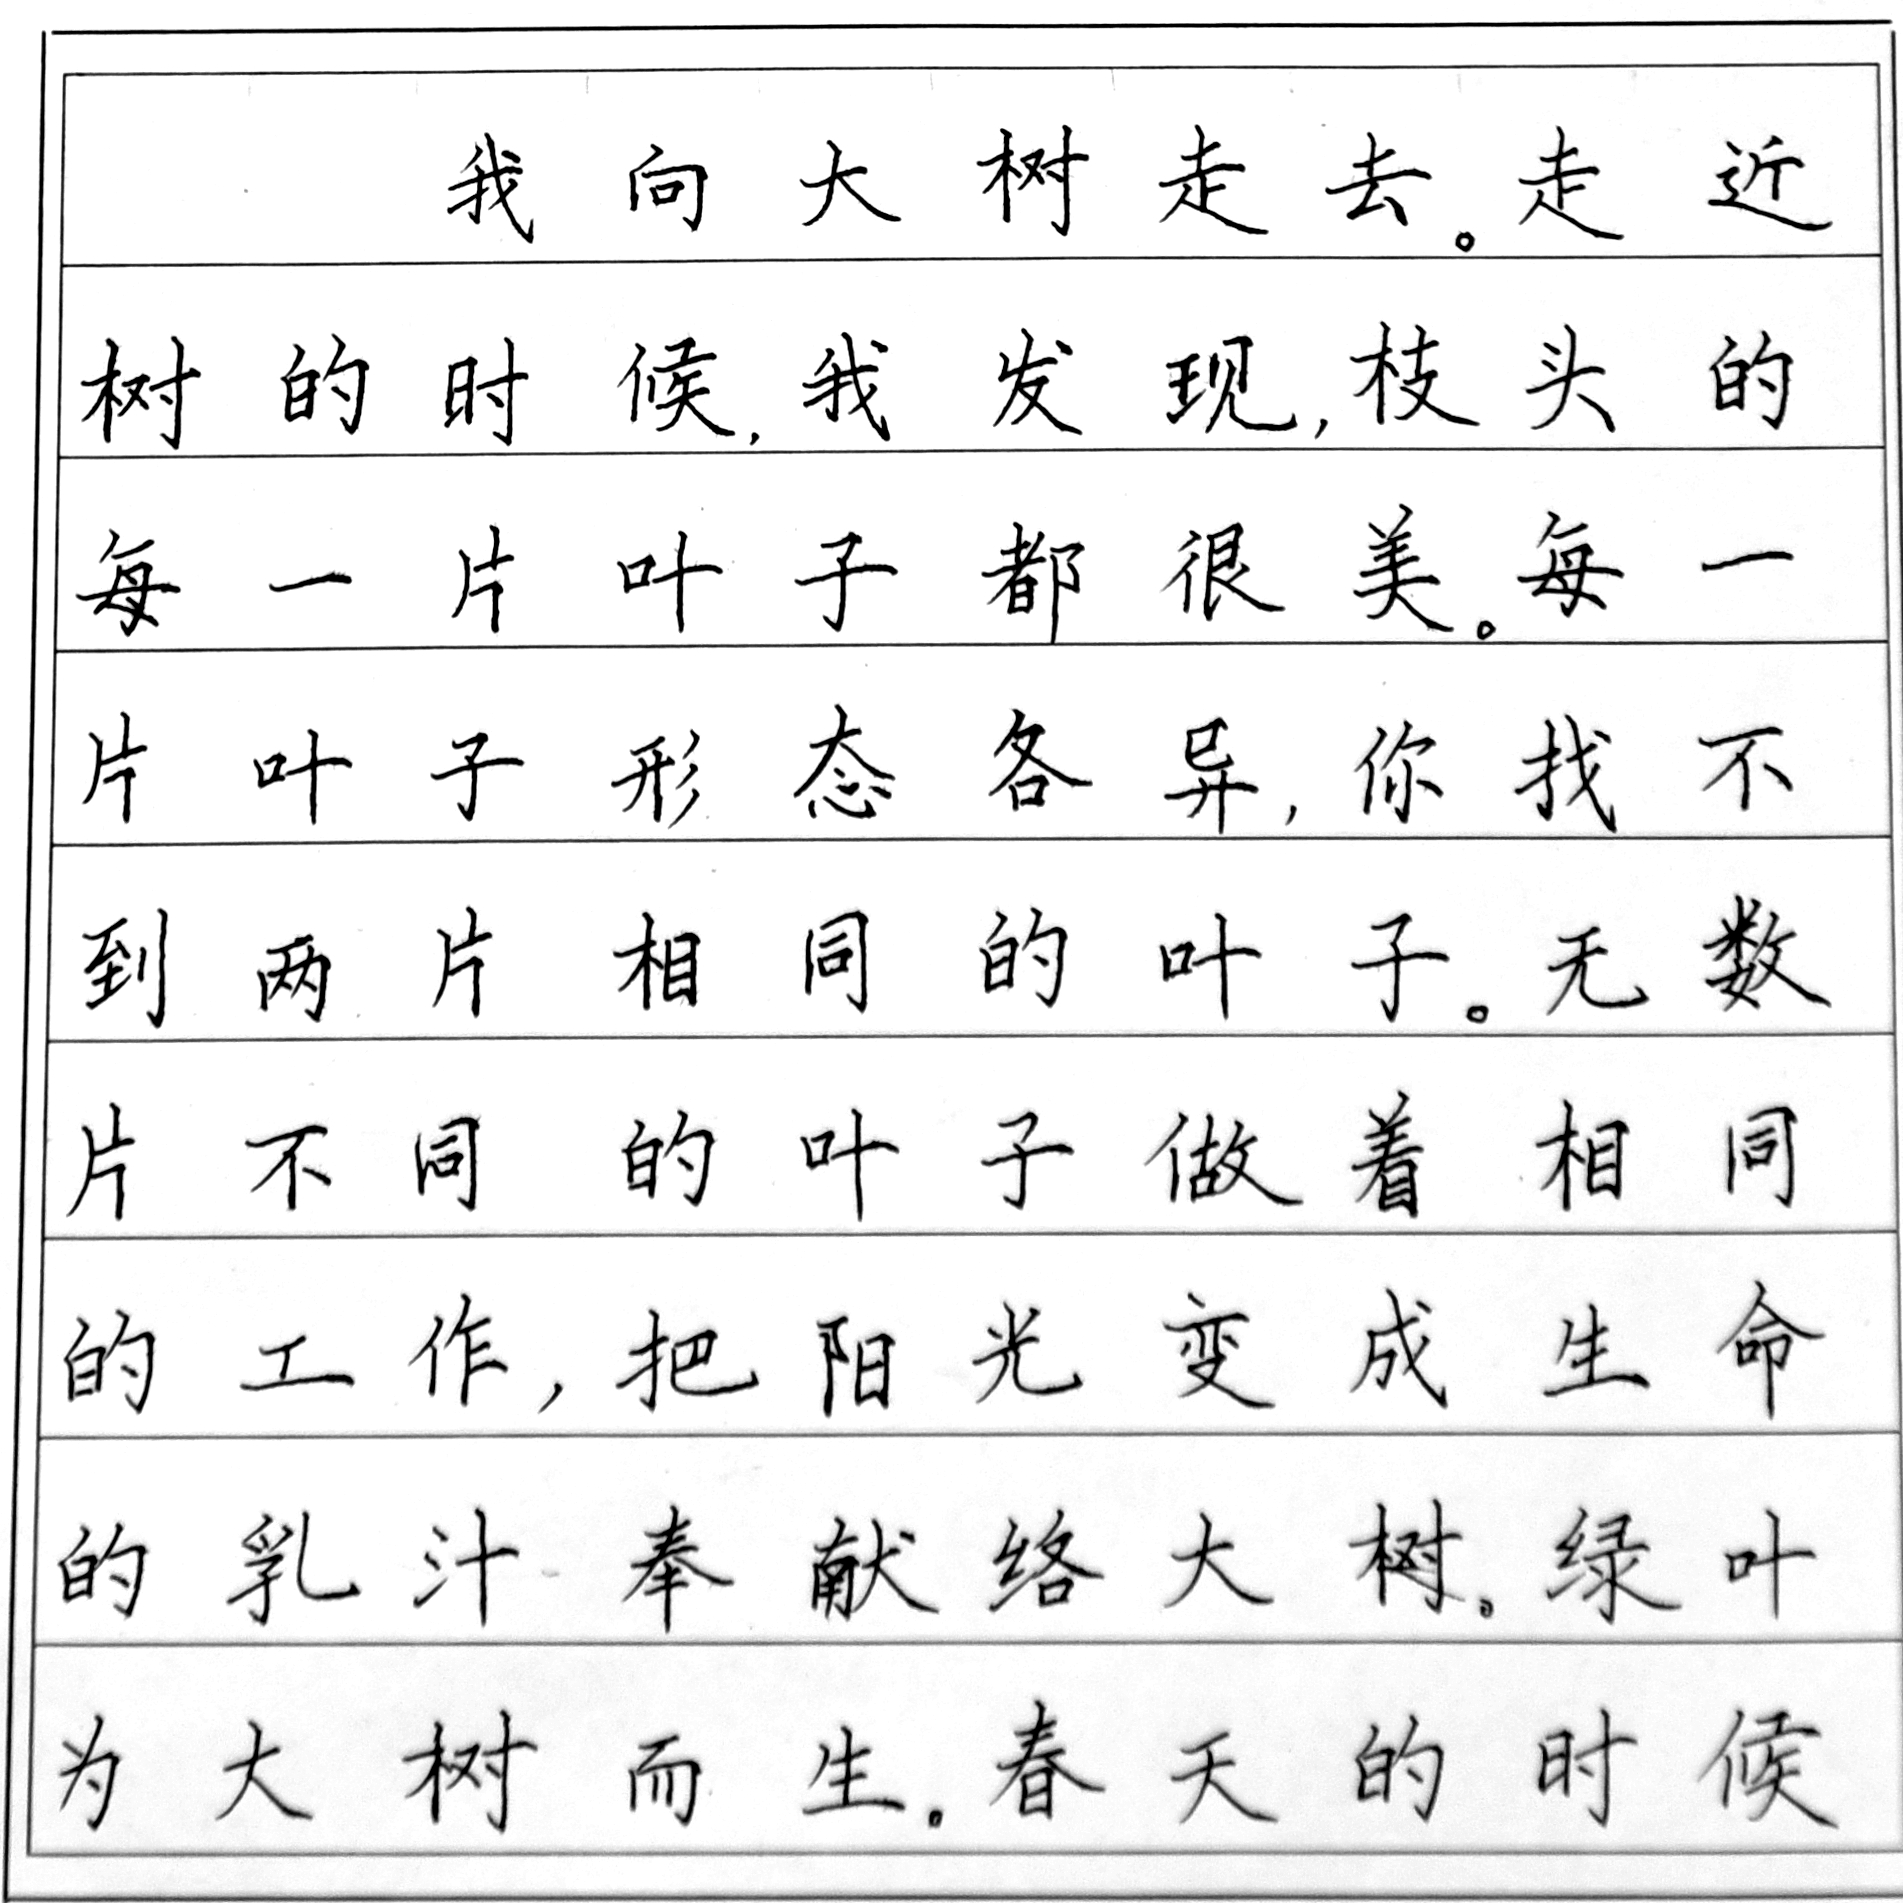 我向大树走去。走近
树的时候,我发现,枝头的
每一片叶子都很美。每一
片叶子形态各异,你找不
到两片相同的叶子。无数
片不同的叶子做着相同
的工作,把阳光变成生命
的乳汁奉献络大树。绿叶
为大树而生。春天的时候